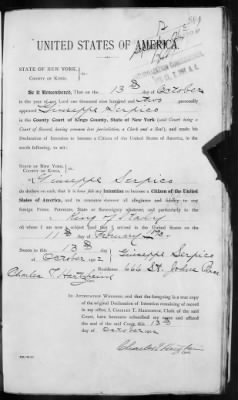 UNITED STATES OF AMERICA.
STATE OF NEW YORK,
COUNTY OF KINGS,
Be it Remembered, That on the 13th day of October
in the year of our Lord one thousand nine hundred and two personally
appeared Giuseppe Serpico
in the County Court of Kings County, State of New York (said Court being a
Court of Record, having common law jurisdiction, a Clerk and a Seal), and made his
Declaration of Intention to become a Citizen of the United States of America, in the
words following, to wit:
STATE OF NEW YORK,
COUNTY OF KINGS,
I, Giuseppe Serpico
do declare on oath that it is bona fide my Intention to become a Citizen of the United
States of America, and to renounce forever all allegiance and fidelity to any
foreign Prince, Potentate, State or Sovereignty whatever, and particularly to the
King of Italy
of whom I am now a subject and that I arrived in the United States on the
11th day of February
Sworn to this 13th
day of October 1902
Giuseppe Serpico
Charles T. Hartzheim
Residence 666 St. Johns Place
IN ATTESTATION WHEREOF, and that the foregoing is a true copy
of the original Declaration of Intention remaining of record
in my office, I, CHARLES T. HARTZHEIM, Clerk of the said
Court, have hereunto subscribed my name and affixed
the seal of the said Court, this 13th
day of October 1902
Charles T. Hartzheim